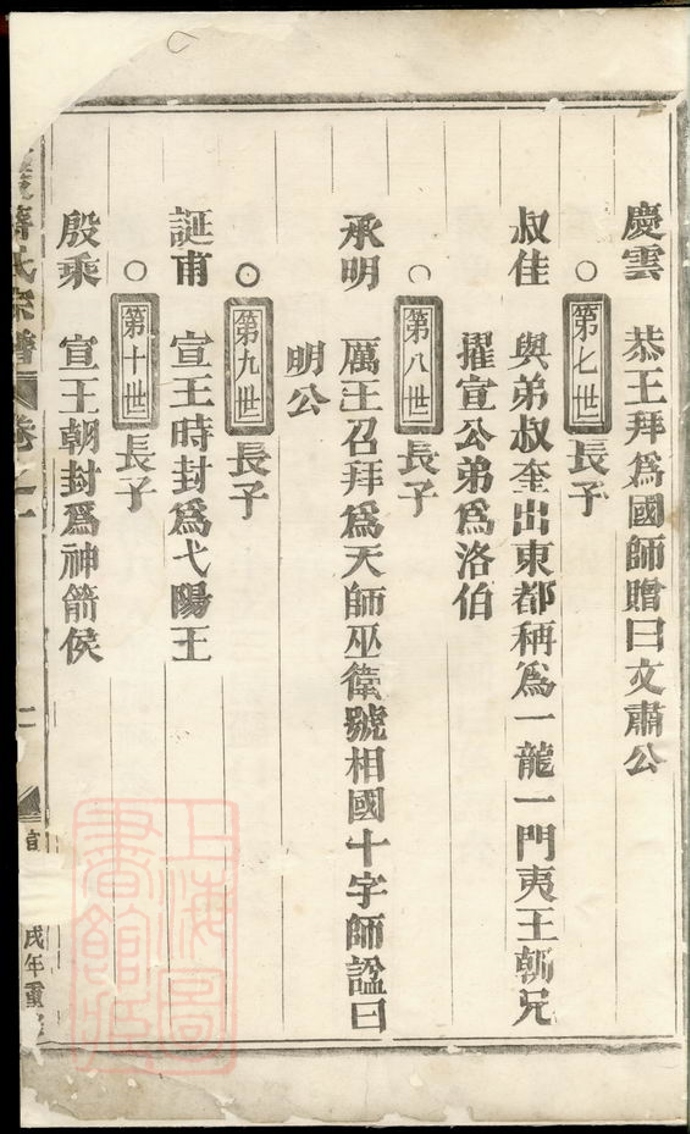 慶雲 恭王拜爲國師贈曰文肅公
○第七世 長子
叔佳 與弟叔奎出東都稱爲一龍一門夷王朝兄
擢宣公弟爲洛伯
○第八世 長子
承明 厲王召拜爲天師巫衛號相國十字師諡曰
明公
○第九世 長子
誕甫 宣王時封爲弋陽王
○第十世 長子
殷乘 宣王朝封爲神箭侯
氏宗譜 卷之一 二
戌年重
上海圖
書館藏